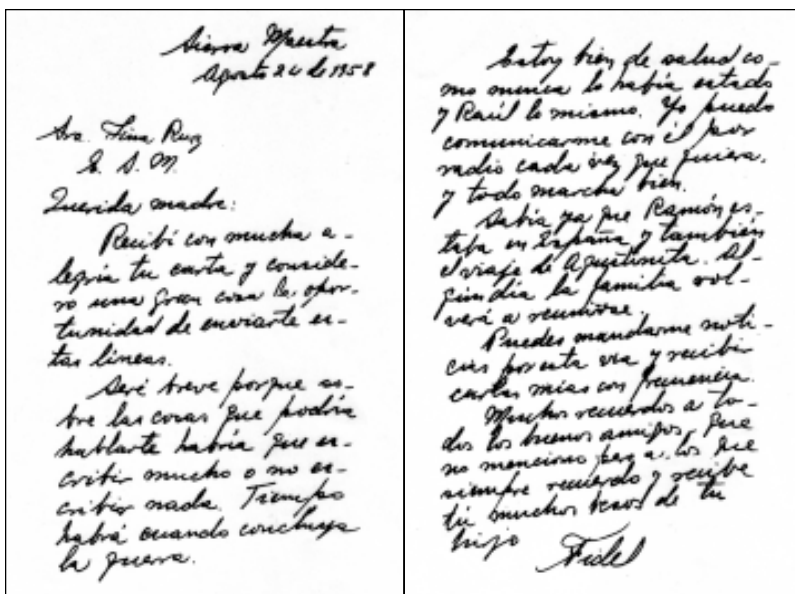 Sierra Maestra
Agosto 24 de 1958
Sra. Lina Ruz
E. S. M.
Querida madre:
Recibí con mucha a-
legría tu carta y conside-
ro una gran cosa la opor-
tunidad de enviarte es-
tas líneas.
Seré breve porque so-
bre las cosas que podría
hablarte habría que es-
cribir mucho o no es-
cribir nada. Tiempo
habrá cuando concluya
la guerra.
Estoy bien de salud co-
mo nunca lo había estado
y Raúl lo mismo. Yo puedo
comunicarme con él por
radio cada vez que quiera,
y todo marcha bien.
Sabía ya que Ramón es-
taba en España y también
el viaje de Agustinita. Al-
gún día la familia vol-
verá a reunirse.
Puedes mandarme noti-
cias por esta vía y recibir
cartas mías con frecuencia.
Muchos recuerdos a to-
dos los buenos amigos, que
no menciono pero a los que
siempre recuerdo y recibe
tú muchos besos de tu
hijo
Fidel